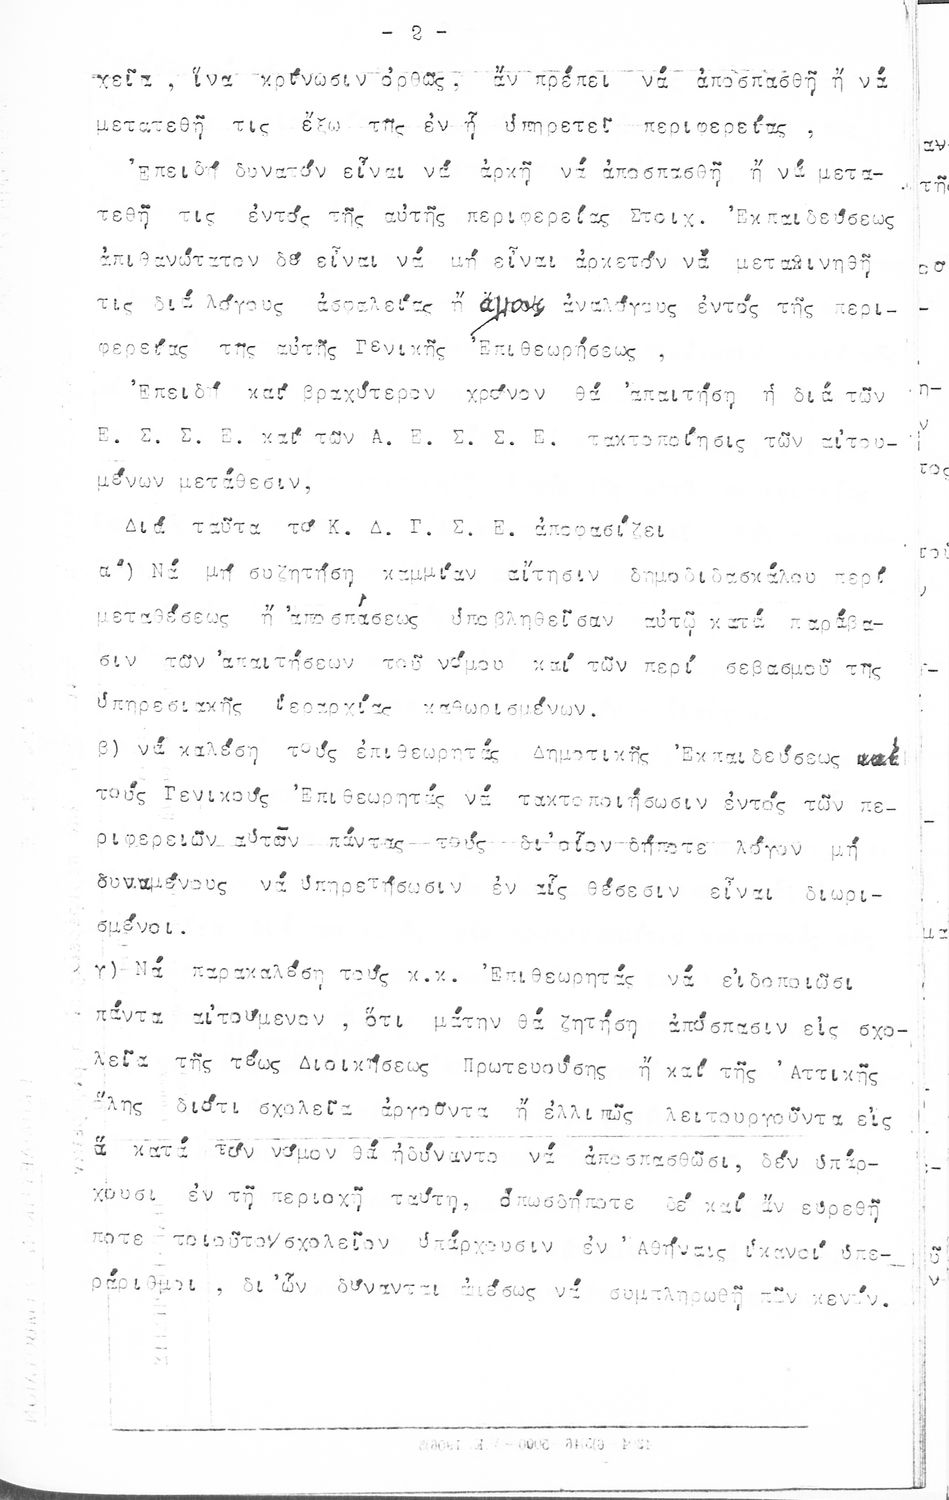 - 2 -
χεῖα , ἵνα κρίνωσιν ὀρθῶς, ἄν πρέπει νά ἀποσπασθῇ ἤ νά
μετατεθῇ τις ἔξω τῆς ἐν ᾗ ὑπηρετεῖ περιφερείας ,
Ἐπειδή δυνατόν εἶναι νά ἀρκῇ νά ἀποσπασθῇ ἤ νά μετα-
τεθῇ τις ἐντός τῆς αὐτῆς περιφερείας Στοιχ. Ἐκπαιδεύσεως
ἀπιθανώτατον δέ εἶναι νά μή εἶναι ἀρκετόν νά μετακινηθῇ
τις διά λόγους ἀσφαλείας ἤ ἀναλόγους ἐντός τῆς περι-
φερείας τῆς αὐτῆς Γενικῆς Ἐπιθεωρήσεως ,
Ἐπειδή καί βραχύτερον χρόνον θά ἀπαιτήσῃ ἡ διά τῶν
Ε. Σ. Σ. Ε. καί τῶν Α. Ε. Σ. Σ. Ε. τακτοποίησις τῶν αἰτου-
μένων μετάθεσιν,
Διά ταῦτα τό Κ. Δ. Γ. Σ. Ε. ἀποφασίζει
α') Νά μή συζητήσῃ καμμίαν αἴτησιν δημοδιδασκάλου περί
μεταθέσεως ἤ ἀποσπάσεως ὑποβληθεῖσαν αὐτῷ κατά παράβα-
σιν τῶν ἀπαιτήσεων τοῦ νόμου καί τῶν περί σεβασμοῦ τῆς
ὑπηρεσιακῆς ἱεραρχίας καθωρισμένων.
β) νά καλέσῃ τούς ἐπιθεωρητάς Δημοτικῆς Ἐκπαιδεύσεως καί
τούς Γενικούς Ἐπιθεωρητάς νά τακτοποιήσωσιν ἐντός τῶν πε-
ριφερειῶν αὐτῶν πάντας τούς δι'οἷον δήποτε λόγον μή
δυναμένους νά ὑπηρετήσωσιν ἐν αἷς θέσεσιν εἶναι διωρι-
σμένοι.
γ) Νά παρακαλέσῃ τούς κ.κ. Ἐπιθεωρητάς νά εἰδοποιῶσι
πάντα αἰτούμενον , ὅτι μάτην θά ζητήσῃ ἀπόσπασιν εἰς σχο-
λεῖα τῆς τέως Διοικήσεως Πρωτευούσης ἤ καί τῆς Ἀττικῆς
ὅλης διότι σχολεῖα ἀργοῦντα ἤ ἐλλιπῶς λειτουργοῦντα εἰς
ἅ κατά τόν νόμον θά ἠδύναντο νά ἀποσπασθῶσι, δέν ὑπάρ-
χουσι ἐν τῇ περιοχῇ ταύτῃ, ὁπωσδήποτε δέ καί ἄν εὑρεθῇ
ποτε τοιοῦτο/σχολεῖον ὑπάρχουσιν ἐν Ἀθήναις ἱκανοί ὑπε-
ράριθμοι , δι'ὧν δύνανται ἀμέσως νά συμπληρωθῇ πᾶν κενόν.